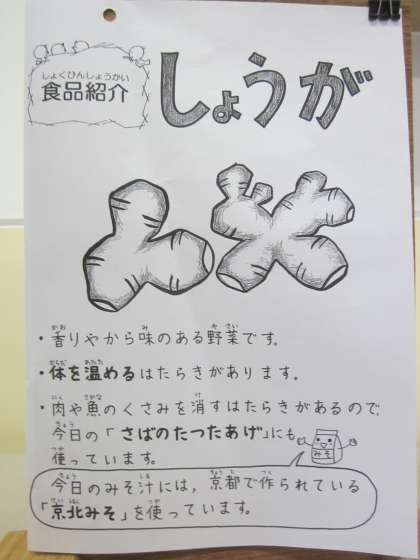 しょくひんしょうかい
食品紹介
しょうが
・香りやから味のある野菜です。
・体を温めるはたらきがあります。
・肉や魚のくさみを消すはたらきがあるので、
今日の「さばのたつたあげ」にも
使っています。
みそ
今日のみそ汁には，京都で作られている
「京北みそ」を使っています。